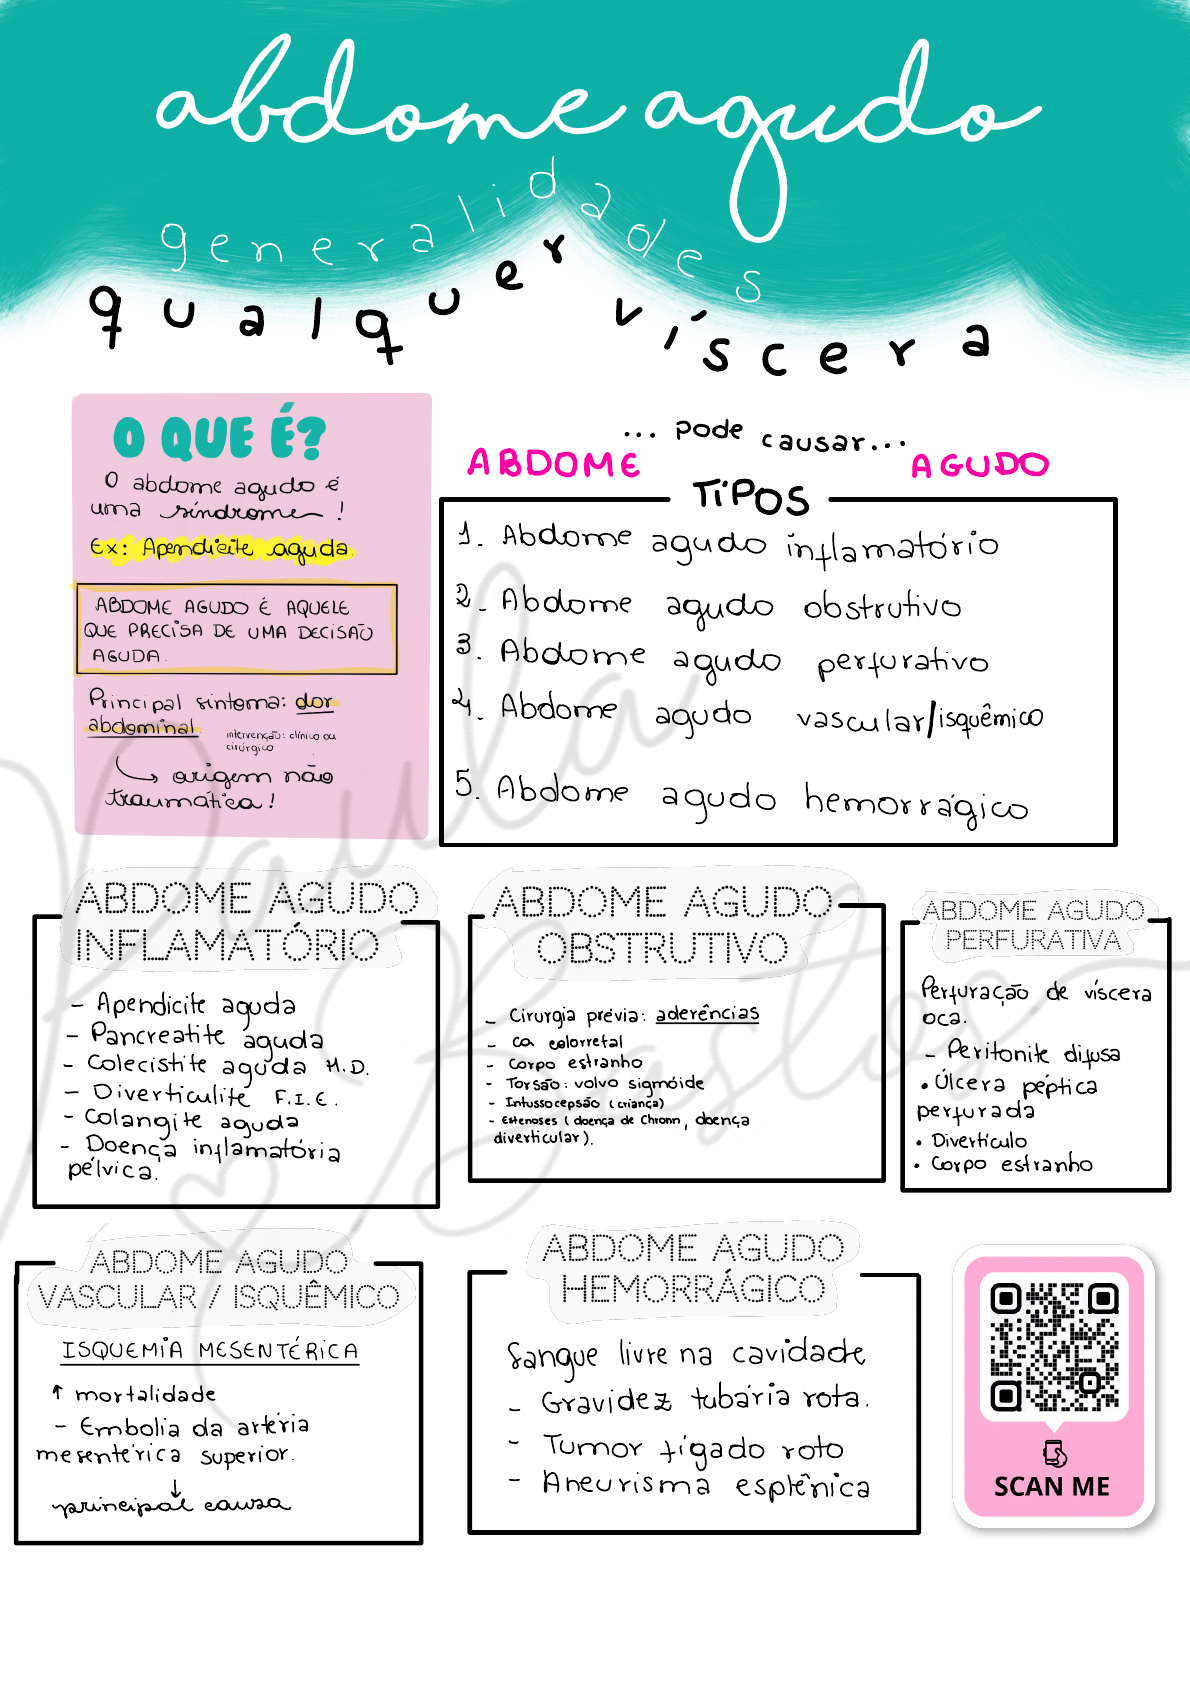 abdome agudo
generalidades
qualquer víscera
O QUE É?
O abdome agudo é
uma síndrome !
Ex: Apendicite aguda.
ABDOME AGUDO É AQUELE
QUE PRECISA DE UMA DECISÃO
AGUDA.
Principal sintoma: dor
abdominal
intervenção: clínico ou
cirúrgico
origem não
traumática!
... pode causar...
ABDOME AGUDO
TIPOS
1. Abdome agudo inflamatório
2. Abdome agudo obstrutivo
3. Abdome agudo perfurativo
4. Abdome agudo vascular/isquêmico
5. Abdome agudo hemorrágico
ABDOME AGUDO
INFLAMATÓRIO
- Apendicite aguda
- Pancreatite aguda
- Colecistite aguda H.D.
- Diverticulite F.I.E.
- Colangite aguda
- Doença inflamatória
pélvica.
ABDOME AGUDO
OBSTRUTIVO
- Cirurgia prévia: aderências
- ca colorretal
- Corpo estranho
- Torsão: volvo sigmóide
- Intussocepsão (criança)
- Estenoses (doença de Chronn, doença
diverticular).
ABDOME AGUDO
PERFURATIVA
Perfuração de víscera
oca.
- Peritonite difusa
• Úlcera péptica
perfurada
• Divertículo
• Corpo estranho
ABDOME AGUDO
VASCULAR / ISQUÊMICO
ISQUEMIA MESENTÉRICA
↑ mortalidade
- Embolia da artéria
mesentérica superior.
↓
principal causa
ABDOME AGUDO
HEMORRÁGICO
Sangue livre na cavidade
- Gravidez tubária rota.
- Tumor fígado roto
- Aneurisma esplênica
SCAN ME
Paula Bastos